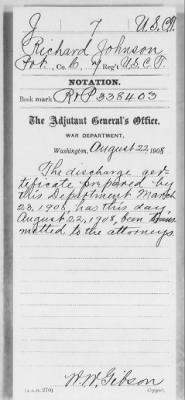 J | 7 | U.S.C.T.
Richard Johnson
Pvt., Co. C, 7 Reg't U.S.C.T.
NOTATION.
Book mark R&P 338403
The Adjutant General's Office,
WAR DEPARTMENT,
Washington, August 22, 1908
The discharge cer-
tificate prepared by
this Department March
23, 1906, has this day
August 22, 1908, been trans-
mitted to the attorneys.
W.W. Gibson
(A.G.O. 270) Copyist.